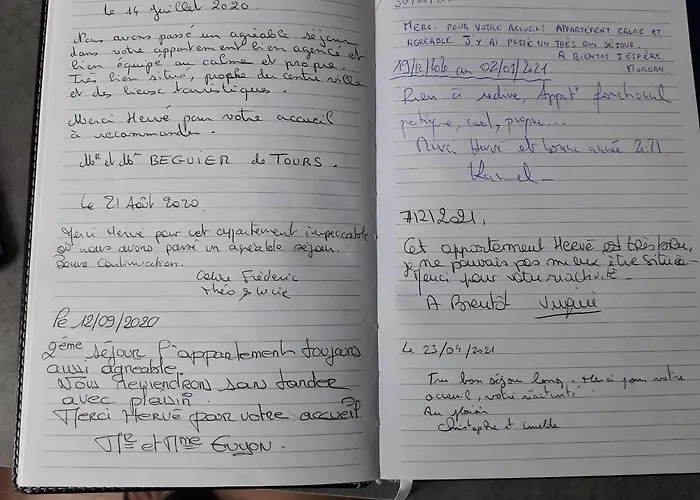 Le 14 Juillet 2020.
Nous avons passé un agréable séjour
dans votre appartement bien agencé et
bien équipé au calme et propre.
Très bien situé, proche du centre ville
et des lieux touristiques.
Merci Hervé pour votre accueil
à recommander.
Mr et Me BEGUIER de TOURS.
Le 21 Août 2020
Merci Hervé pour cet appartement impeccable
où nous avons passé un agréable séjour.
Bonne Continuation.
Frédéric
Théo & Lucie
Le 12/09/2020
2ème séjour l'appartement toujours
aussi agréable.
Nous reviendrons sans tarder
avec plaisir.
Merci Hervé pour votre accueil
Mr et Mme Guyon.
MERCI POUR VOTRE ACCUEIL! APPARTEMENT CALME ET
AGRÉABLE. J'Y AI PASSÉ UN TRÈS BON SÉJOUR.
A BIENTÔT J'ESPÈRE.
MORGAN
19/12/2020 au 02/01/2021
Rien à redire, Appt fonctionnel
pratique, cool, propre...
Merci Hervé et bonne année 2021.
7/2/2021.
Cet appartement Hervé est très bien,
je ne pouvais pas mieux être située
Merci pour votre réactivité
A Bientôt
Le 23/04/2021
Très bon séjour long. Merci pour votre
accueil, votre réactivité
Au plaisir
Christophe et